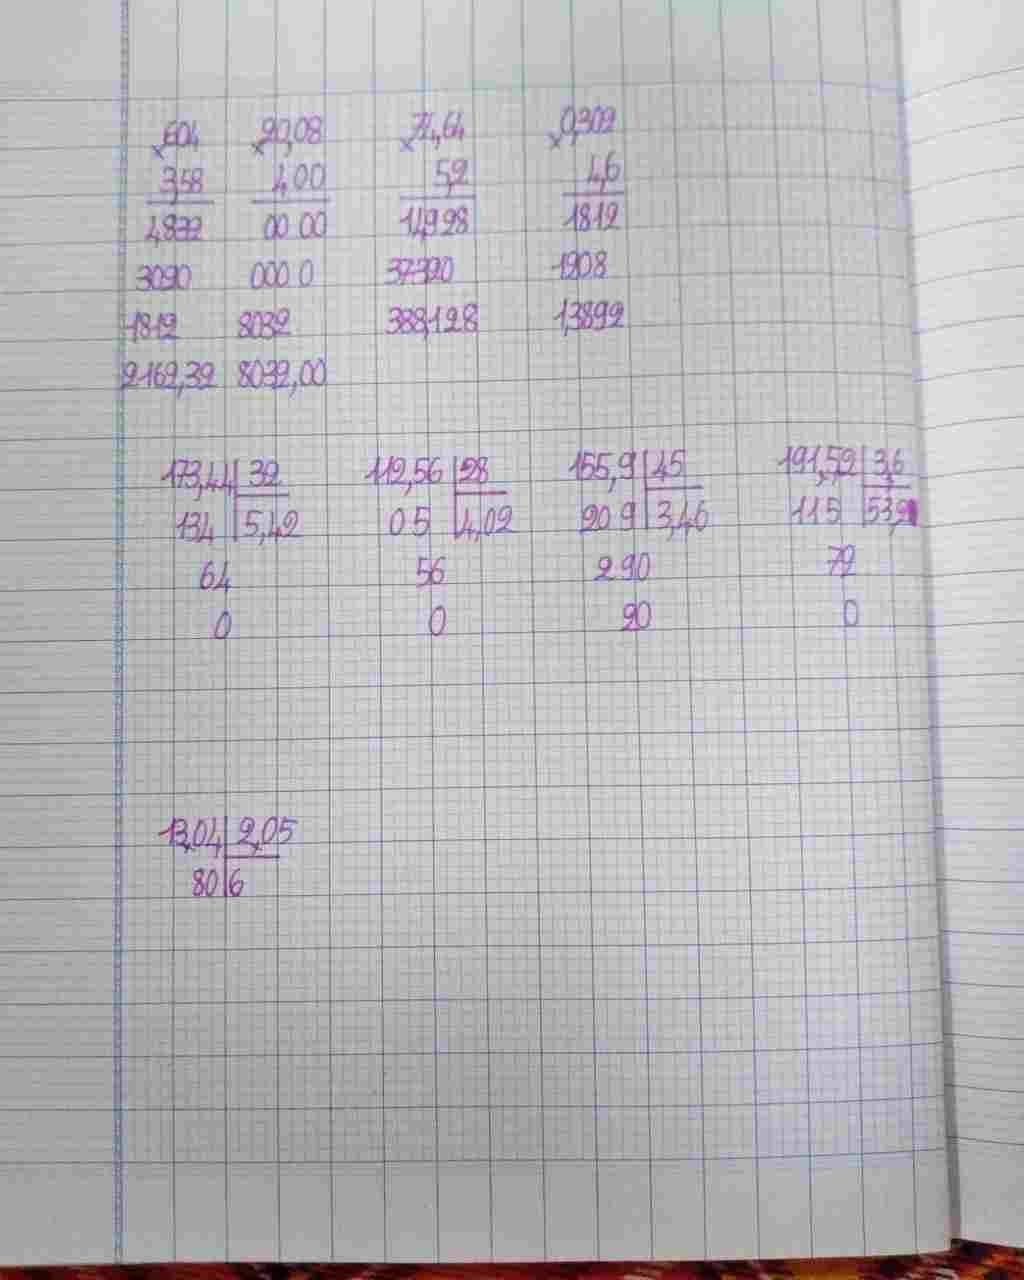 604 20,08 74,64 0,302
× × × ×
3,58 400 5,2 4,6
4832 00 00 14928 1812
3020 000 0 37320 1208
1812 8032 388,128 1,3892
2162,32 8032,00
173,44 32 112,56 28 155,9 45 191,52 3,6
134 5,42 05 4,02 209 3,46 115 53,2
64 56 290 72
0 0 20 0
13,04 2,05
80 6